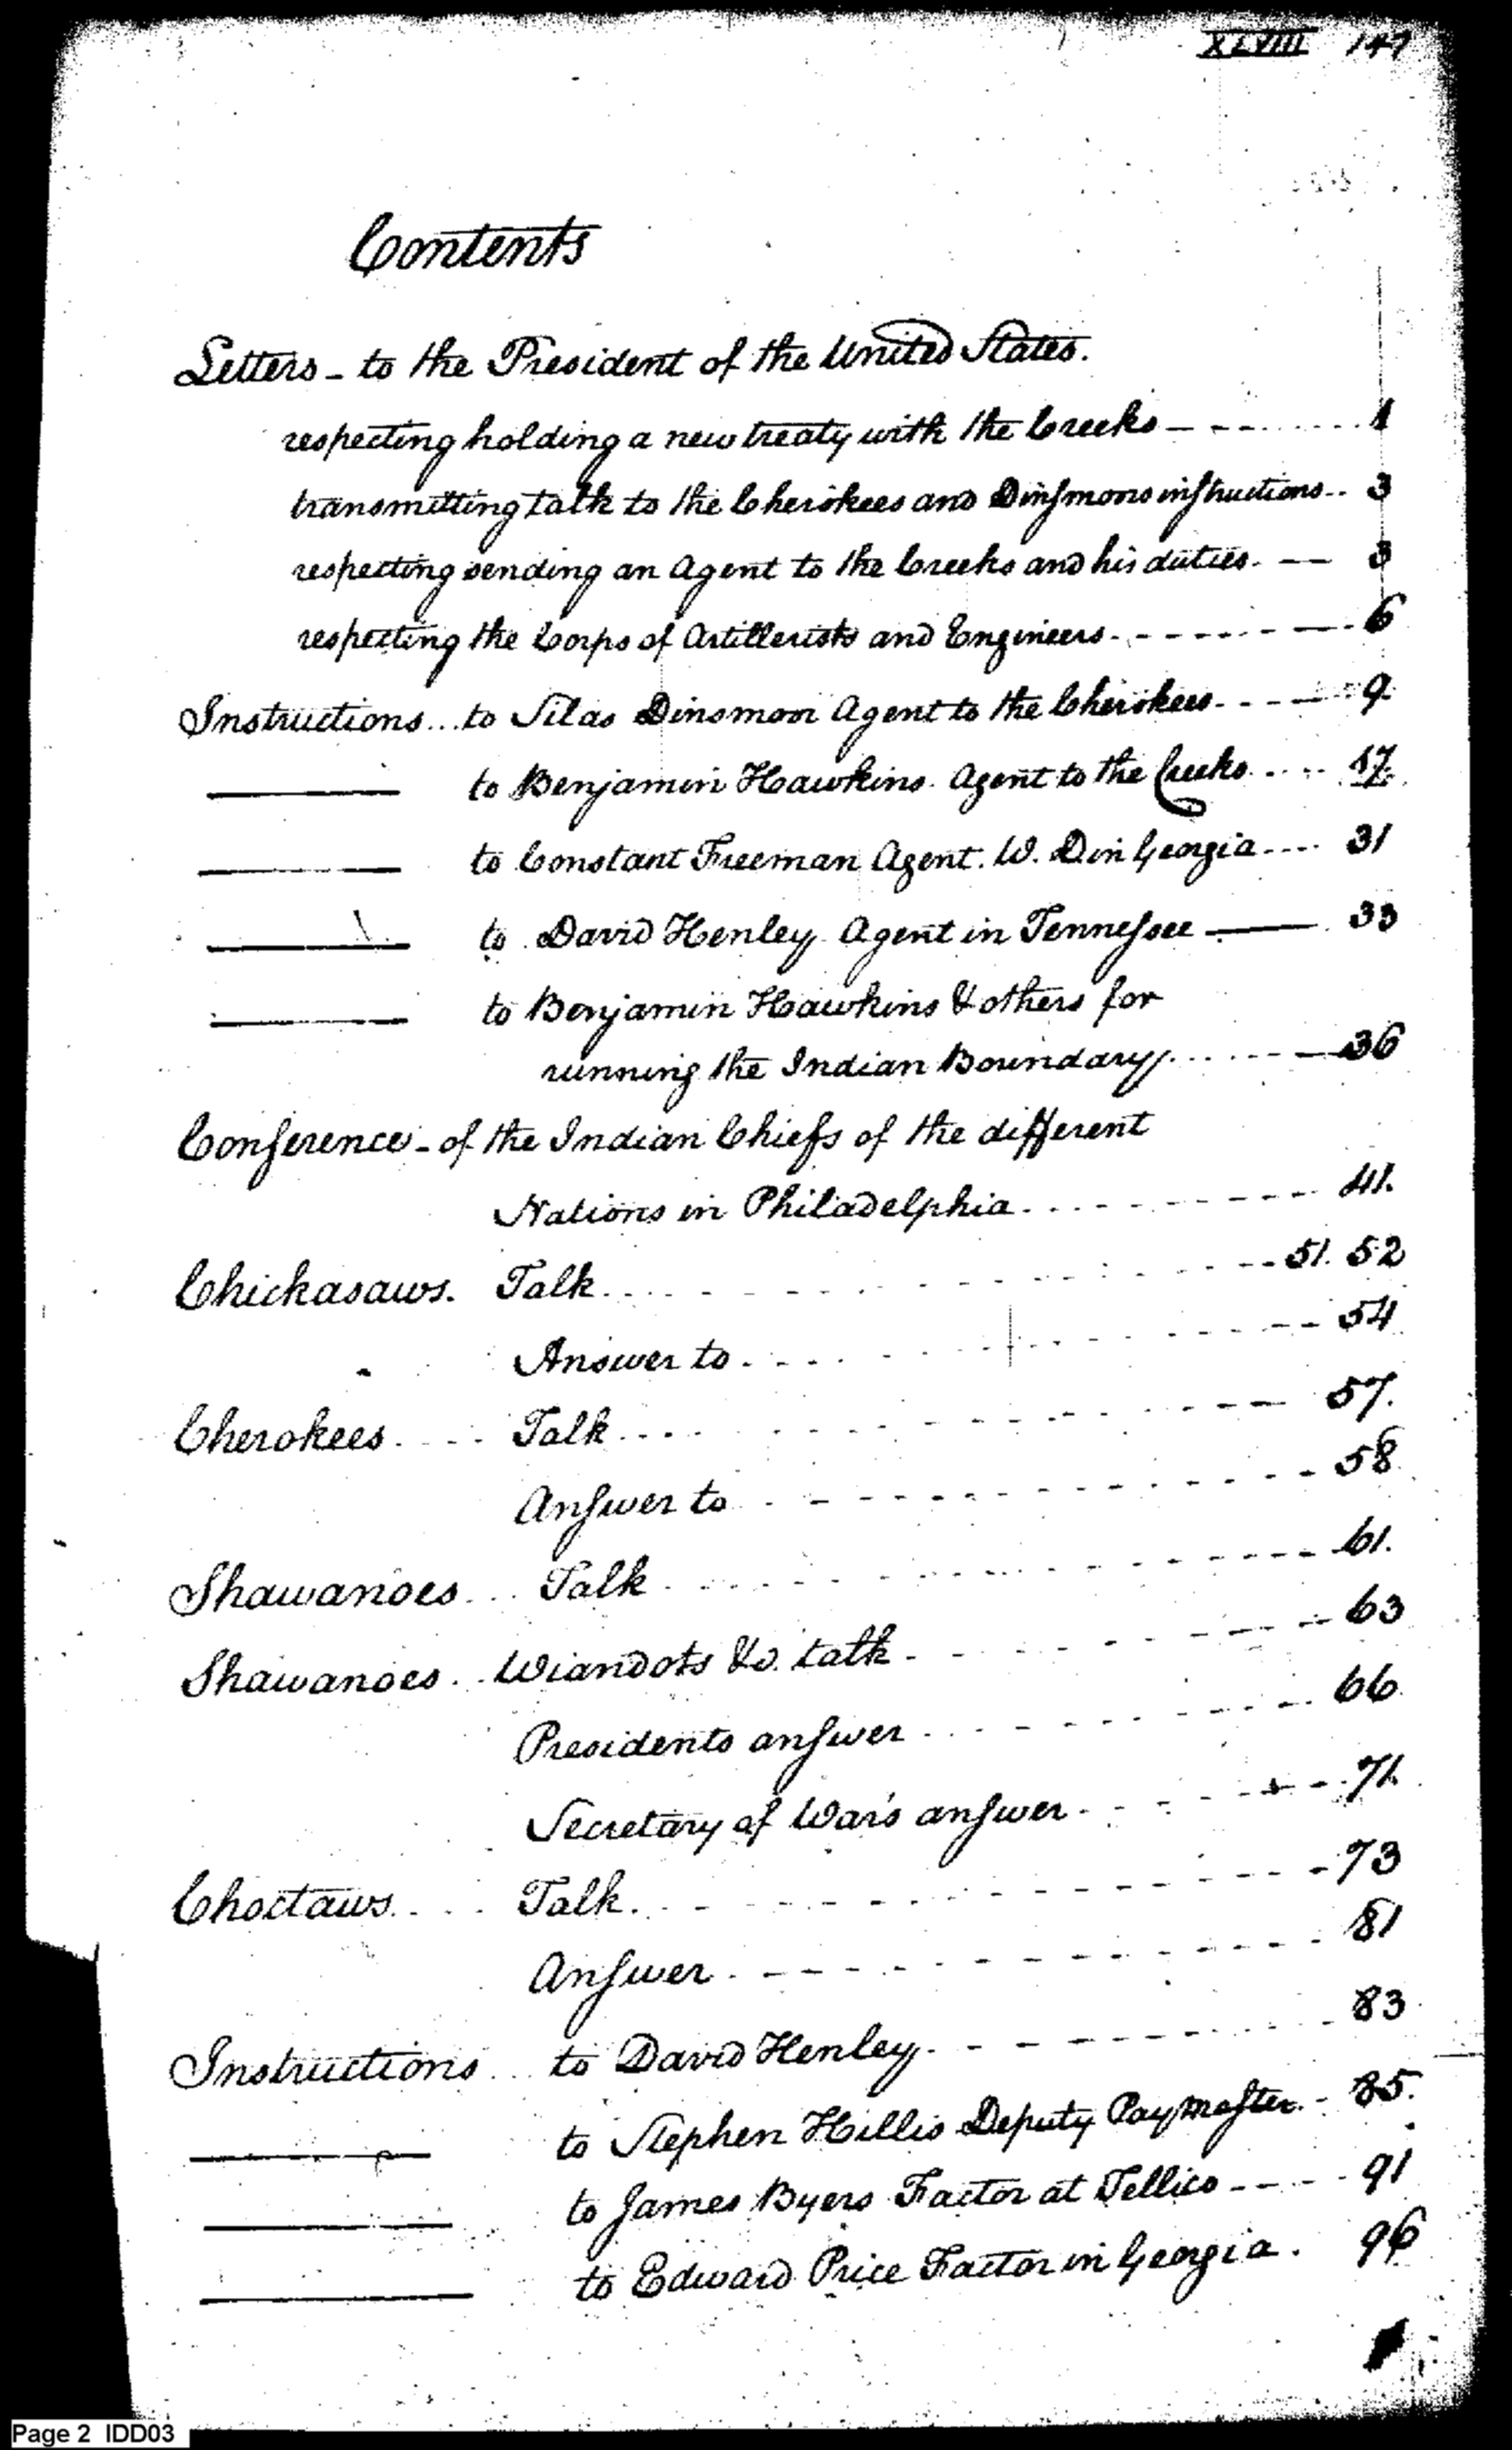 XLVIII 147
Contents
Letters - to the President of the United States.
respecting holding a new treaty with the Creeks - - - ....... 1
transmitting talk to the Cherokees and Dinsmoors instructions.. 3
respecting sending an Agent to the Creeks and his duties. -- 3
respecting the Corps of Artillerists and Engineers. - - - - - - - 6
Instructions... to Silas Dinsmoor Agent to the Cherokees. - - - - 9
——— to Benjamin Hawkins. Agent to the Creeks .... 17.
——— to Constant Freeman Agent. W. D in Georgia .... 31
——— to David Henley Agent in Tennessee —— 33
——— to Benjamin Hawkins & others for
running the Indian Boundary ...... - - 36
Conference - of the Indian Chiefs of the different
Nations in Philadelphia. - - - - - - - - 41.
Chickasaws. Talk .... - - - - - - - - 51. 52
Answer to. - - - - - - - - 54
Cherokees. ... Talk .... - - - - - - - - 57.
Answer to - - - - - - - - 58
Shawanoes... Talk - - - - - - - - 61.
Shawanoes... Wiandots &c. talk - - - - - - - - 63
Presidents answer - - - - - - - - 66
Secretary of War's answer - - - - - - 71.
Choctaws. ... Talk. - - - - - - - - 73
Answer. - - - - - - - - 81
Instructions... to David Henley. - - - - - - - - 83
——— to Stephen Hillis Deputy Paymaster. - 85.
——— to James Byers Factor at Tellico - - - - 91
——— to Edward Price Factor in Georgia. 96
Page 2 IDD03